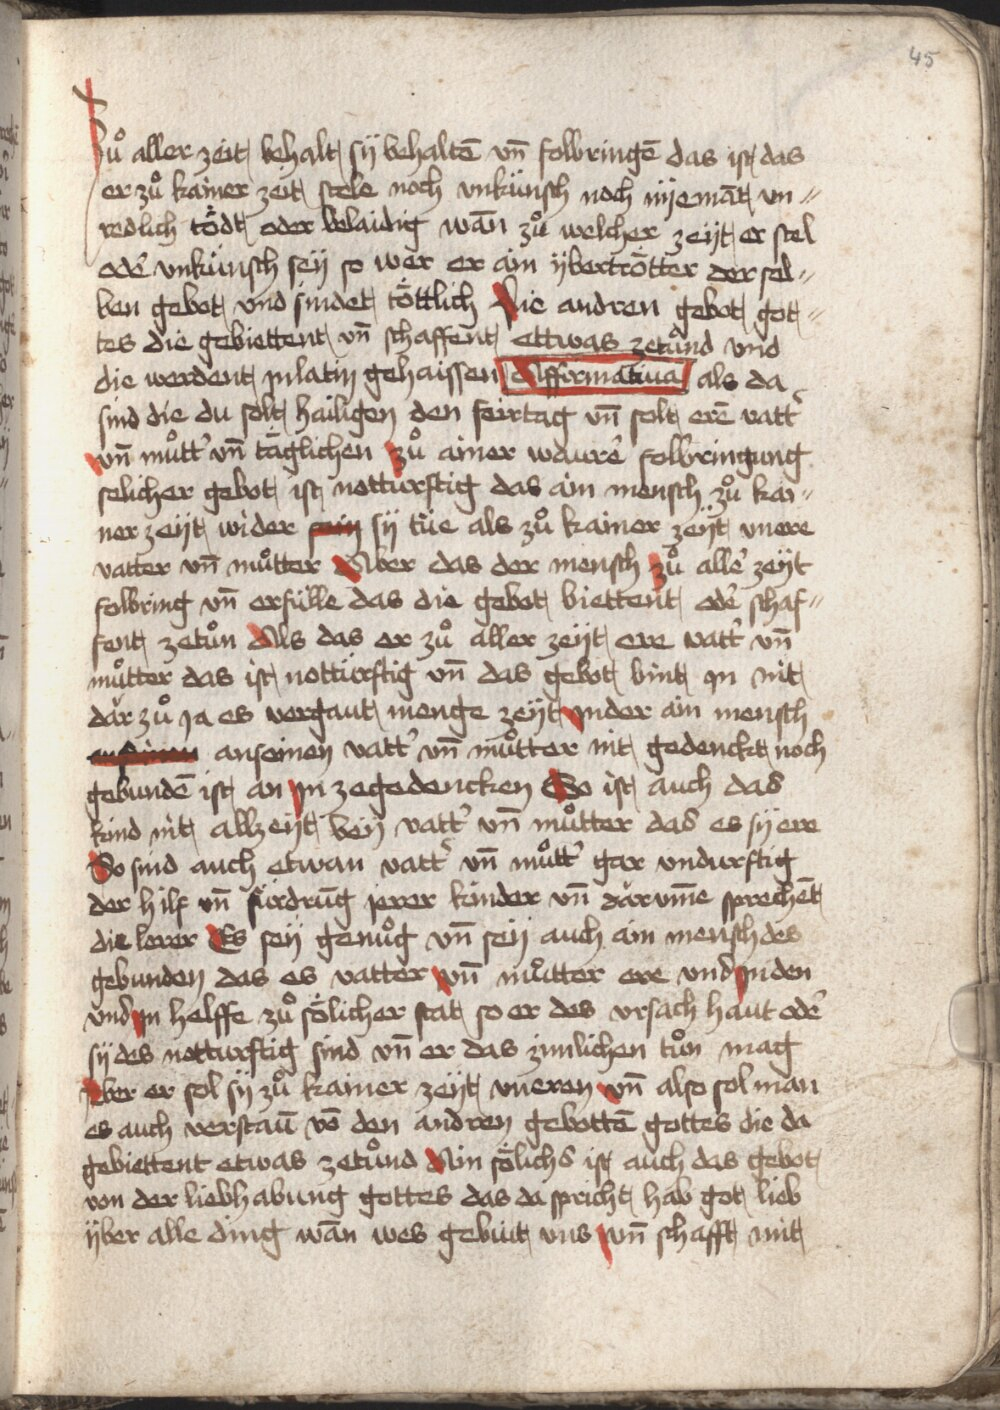 45
Zuͦ aller zeit behalt sÿ behaltē vn̄ folbringē das ist das
er zuͦ kainer zeit stele noch vnkünsch noch nÿemāt vn〃
redlich tödt oder belaidig wān zuͦ welcher zeÿt er stel
odeʼ vnkünsch seÿ so wer er ain ÿbertrötter der sel〃
ben gebot vnd sindet töttlich Die andren gebot got〃
tes die gebiettent vn̄ schaffent ettwas zetuͦnd vnd
die werdent jnlatin gehaissen Affirmatiua als da
sind die du solt hailigen den feirtag vn̄ solt erē vattʼ
vn̄ muͦttʼ vn̄ täglichen zuͦ ainer waureʼ folbringung
selicher gebot ist notturftig das ain mensch zuͦ kai〃
ner zeÿt wider sein sÿ tüe als zuͦ kainer zeÿt vnere
vatter vn̄ muͦtter Aber das der mensch zuͦ alleʼ zeÿt
folbring vn̄ erfülle das die gebot biettent odeʼ schaf〃
fent zetuͦn Als das er zuͦ aller zeÿt ere vattʼ vn̄
muͦtter das ist notturftig vn̄ das gebot bint jn nit
där zuͦ ja es vergaut menge zeÿt jnder ain mensch
anseinen vattʼ vn̄ muͦtter nit gedenckt noch
gebundē ist an jn zegedencken So ist auch das
kind nit allzeÿt beÿ vattʼ vn̄ muͦtter das es sÿ ere
So sind auch etwan vattʼ vn̄ muͦttʼ gar vndurftig
der hilf vn̄ fürdrūg jerer kinder vn̄ därvm̄e sprechēt
die lerer Es seÿ genuͦg vn̄ seÿ auch ain mensch des
gebunden das es vatter vn̄ muͦtter ere vnd jnden
vnd jn helffe zuͦ sölicher stat so er des vrsach haut odeʼ
sÿ des notturftig sind vn̄ er das zimlichen tuͦn mag
Aber er sol sÿ zuͦ kainer zeÿt vneren vn̄ also sol man
es auch verstau̅ vō den andren gebottē gottes die da
gebiettent etwas zetuͦnd Ain sölichs ist auch das gebot
von der liebhabung gottes das da spricht hab got lieb
ÿber alle ding wān wes gebüt vns vn̄ schafft mit